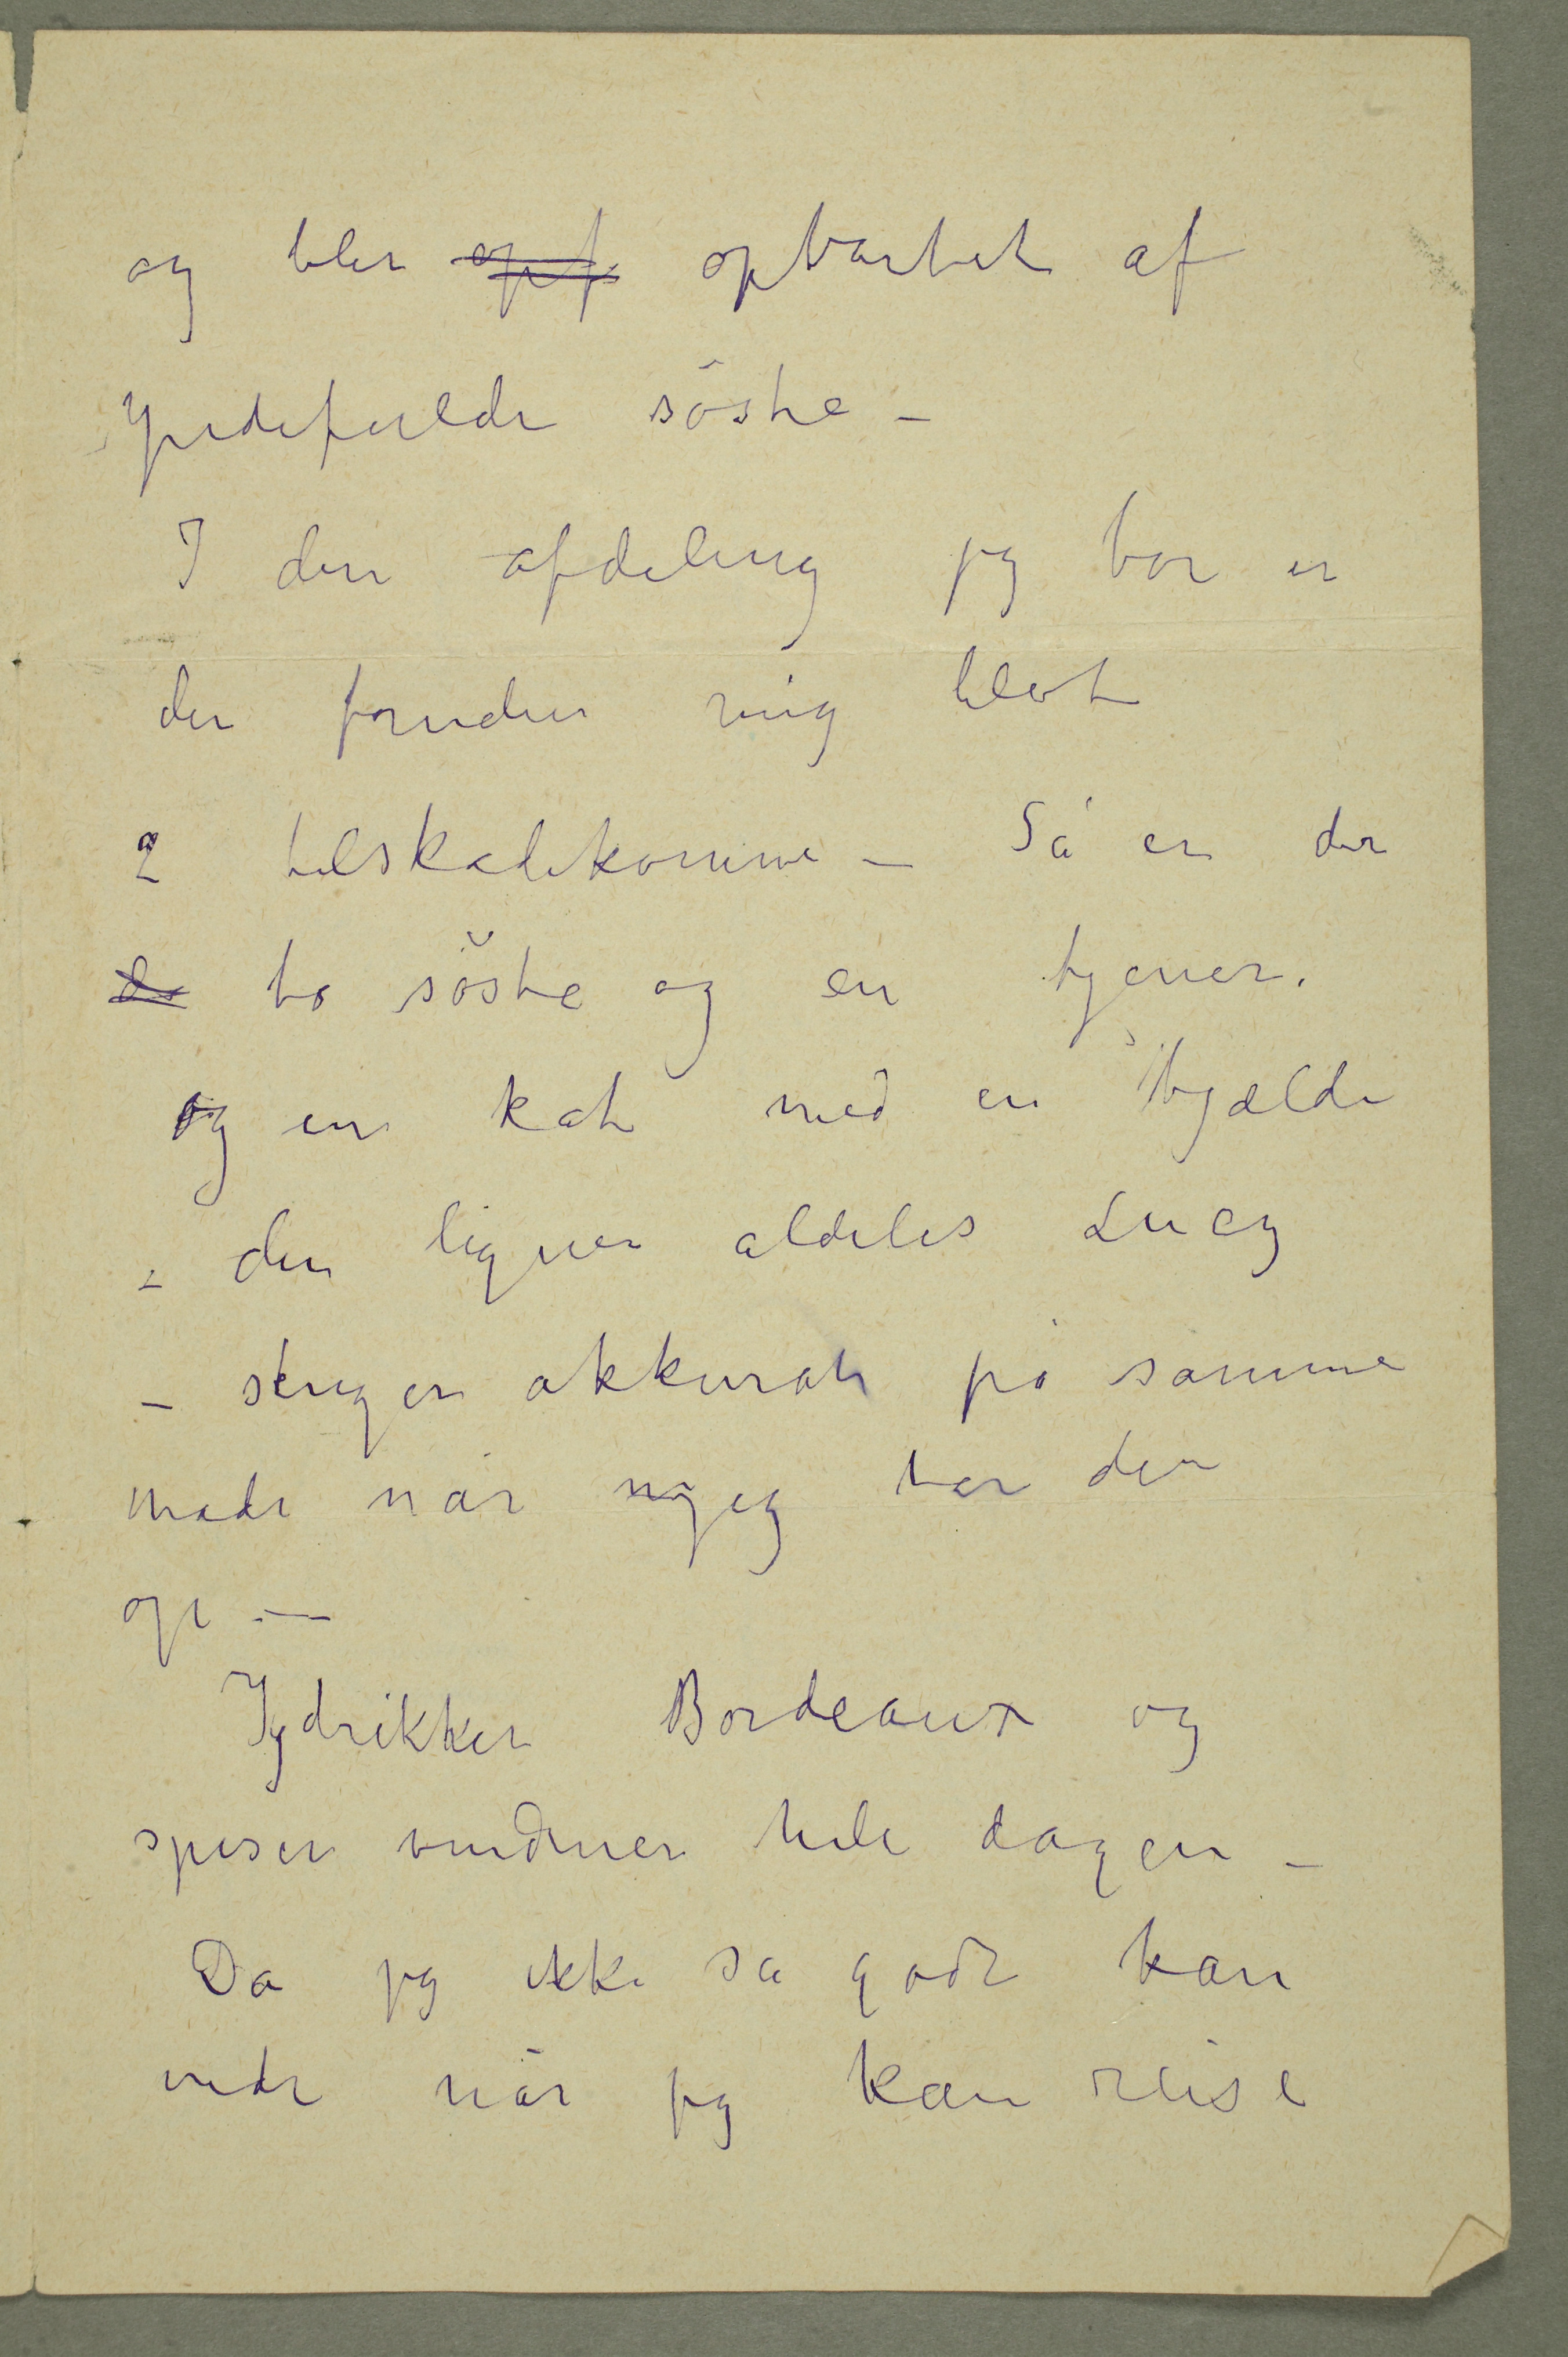 og blir opf opvartet af
yndefulde söstre –
I den afdeling jeg bor er
der foruden mig blot
2 tilskadekomne – Så er der
de to söstre og en tjener.
og en kat med en bjælde
– den ligner aldeles Lucy
– skriger akkurat på samme
måde når mjeg tar den
op –
Jeg drikker Bordeaux og
spiser vindruer hele dagen –
Da jeg ikke så godt kan
vide når jeg kan reise